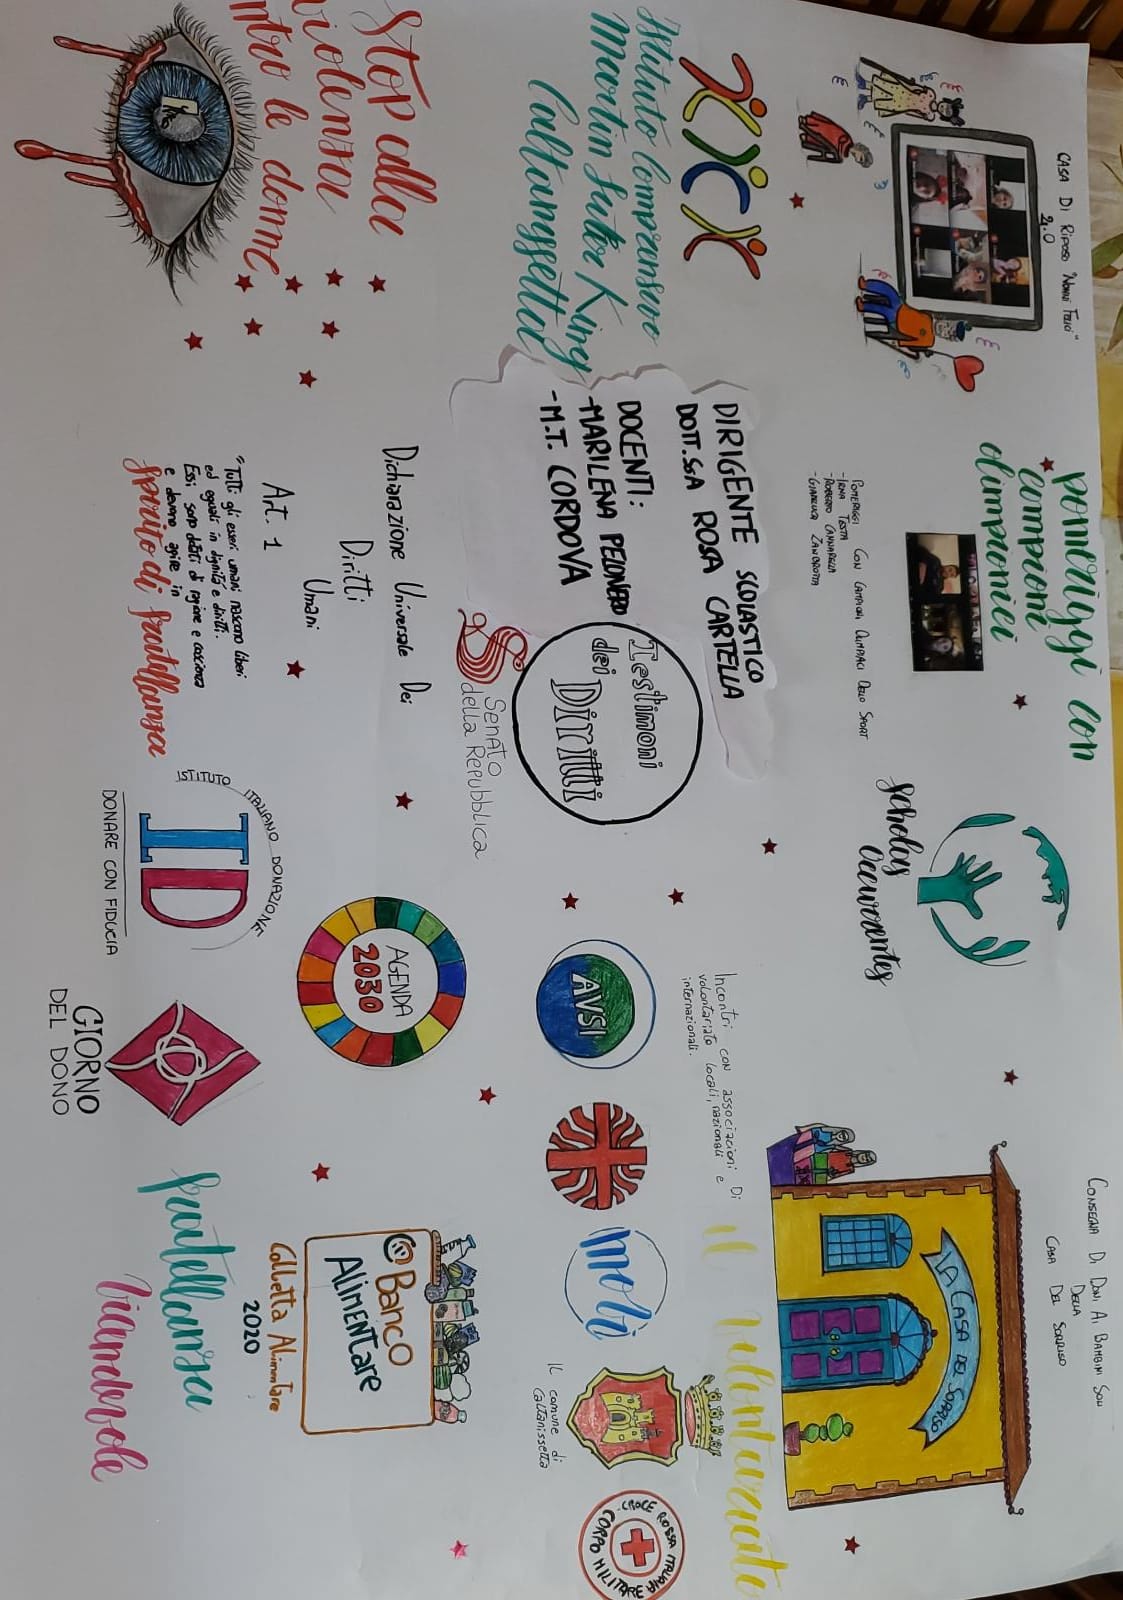 CASA DI RIPOSO "NONNI FELICI"
2.0
Istituto Comprensivo
Martin Luter King
Caltanissetta
Stop alla
violenza
ntro le donne
pomeriggi con
campioni
olimpionici
POMERIGGI CON CAMPIONI OLIMPIACI DELLO SPORT
-IRMA TESTA
-ROBERTO CAMMARELLA
-GIANLUCA ZANDROTTA
DIRIGENTE SCOLASTICO
DOTT.SSA ROSA CARTELLA
DOCENTI:
-MARILENA PELONERO
-M.T. CORDOVA
Testimoni
dei Diritti
SENATO
della Repubblica
Dichiarazione Universale Dei
Diritti
Umani
Art. 1
"Tutti gli esseri umani nascono liberi
ed eguali in dignità e diritti.
Essi sono dotati di ragione e coscienza
e devono agire in
spirito di fratellanza
scholas
occurrentes
Incontri con associazioni Di
volontariato locali, nazionali e
internazionali.
AVSI
AGENDA
2030
ISTITUTO ITALIANO DONAZIONE
ID
DONARE CON FIDUCIA
GIORNO
DEL DONO
CONSEGNA DI DONI AI BAMBINI SOLI
DELLA
CASA DEL SORRISO
LA CASA DEL SORRISO
il volontariato
moli
IL comune di
Caltanissetta
-CROCE ROSSA ITALIANA
CORPO MILITARE
BANCO
ALIMENTARE
Colletta Alimentare
2020
fratellanza
biandevole